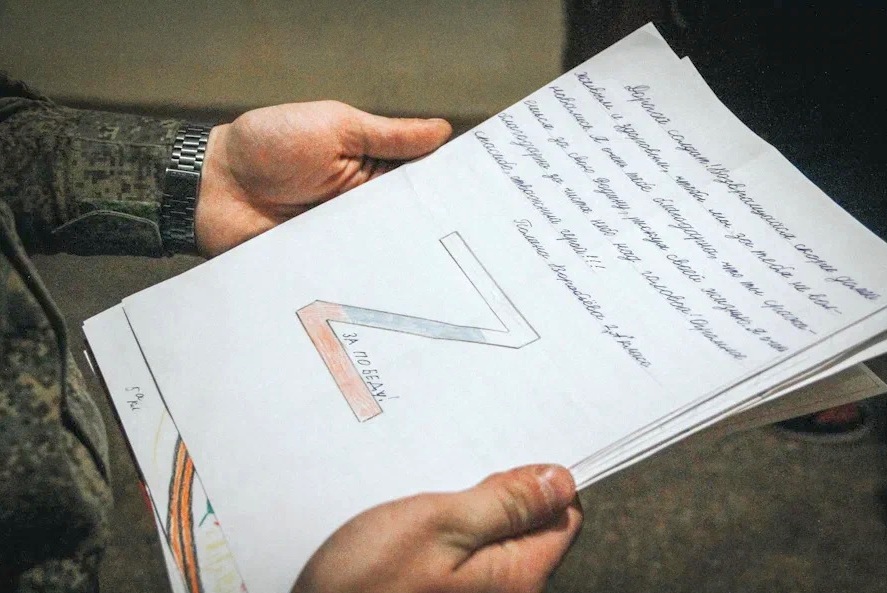 Дорогой солдат! Возвращайся скорее домой
живым и здоровым, чтобы мы за тебя не вол-
новались. Я очень тебе благодарна, что ты сража-
ешься за свою Родину, рискуя своей жизнью. Я очень
благодарна за чистое небо над головой! Огромное
спасибо, отважный герой!!!
Полина Воробьёва класс
Z
ЗА ПОБЕДУ!
5 а
кл